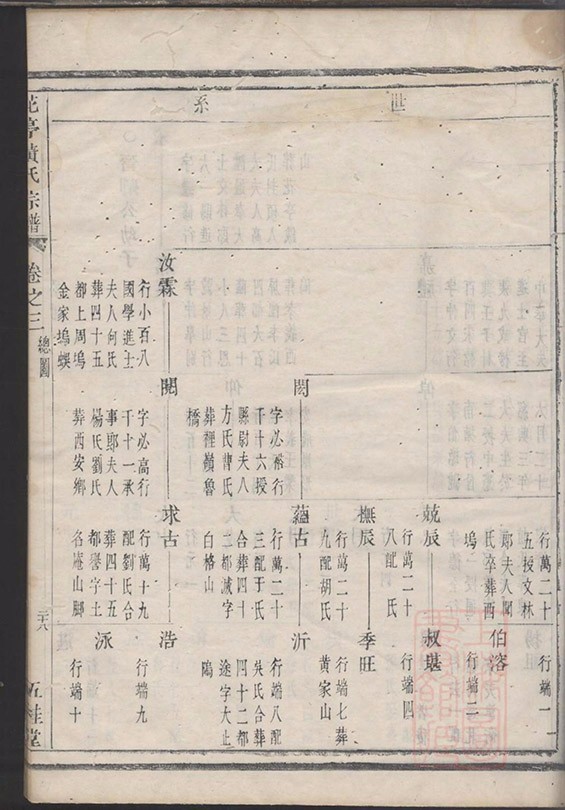 世系
行萬二十
五授文林
郎夫人閻
氏卒葬酉
塢
行端一
伯溶
行端二
兢辰
行萬二十
八配氏
叔堪
行端四
撫辰
行萬二十
九配胡氏
季旺
行端七葬
黃家山
閎
字必裕行
千十六授
縣尉夫八
方氏曹氏
葬裡嶺魯
橋
蘊古
行萬二十
三配于氏
合葬四十
二都減字
白格山
沂
行端八配
吳氏合葬
四十二都
途字大止
塢
汝霖
行小百八
國學進士
夫人何氏
葬四十五
都上周塢
金家塢蜈
閌
字必高行
千十一承
事郎夫人
楊氏劉氏
葬西安鄉
求古
行萬十九
配劉氏合
葬四十五
都譽字土
名庵山腳
浩
行端九
泳
行端十
花亭黃氏宗譜
卷之三
總圖
二十八
五桂堂